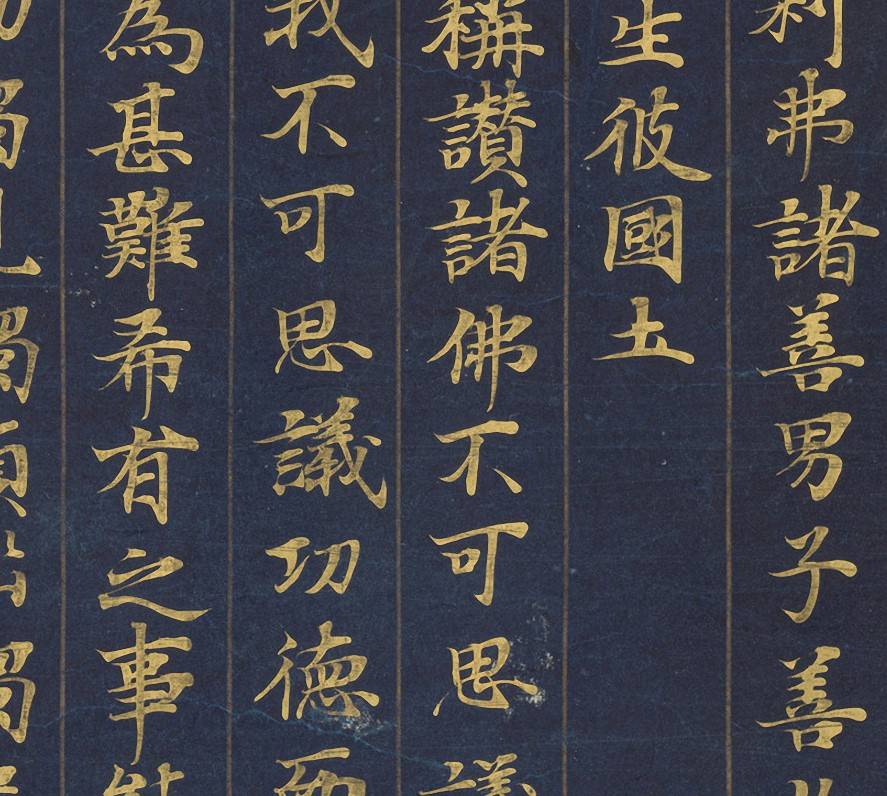 利弗諸善男子善
生彼國土
稱讚諸佛不可思議
我不可思議功德
為甚難希有之事